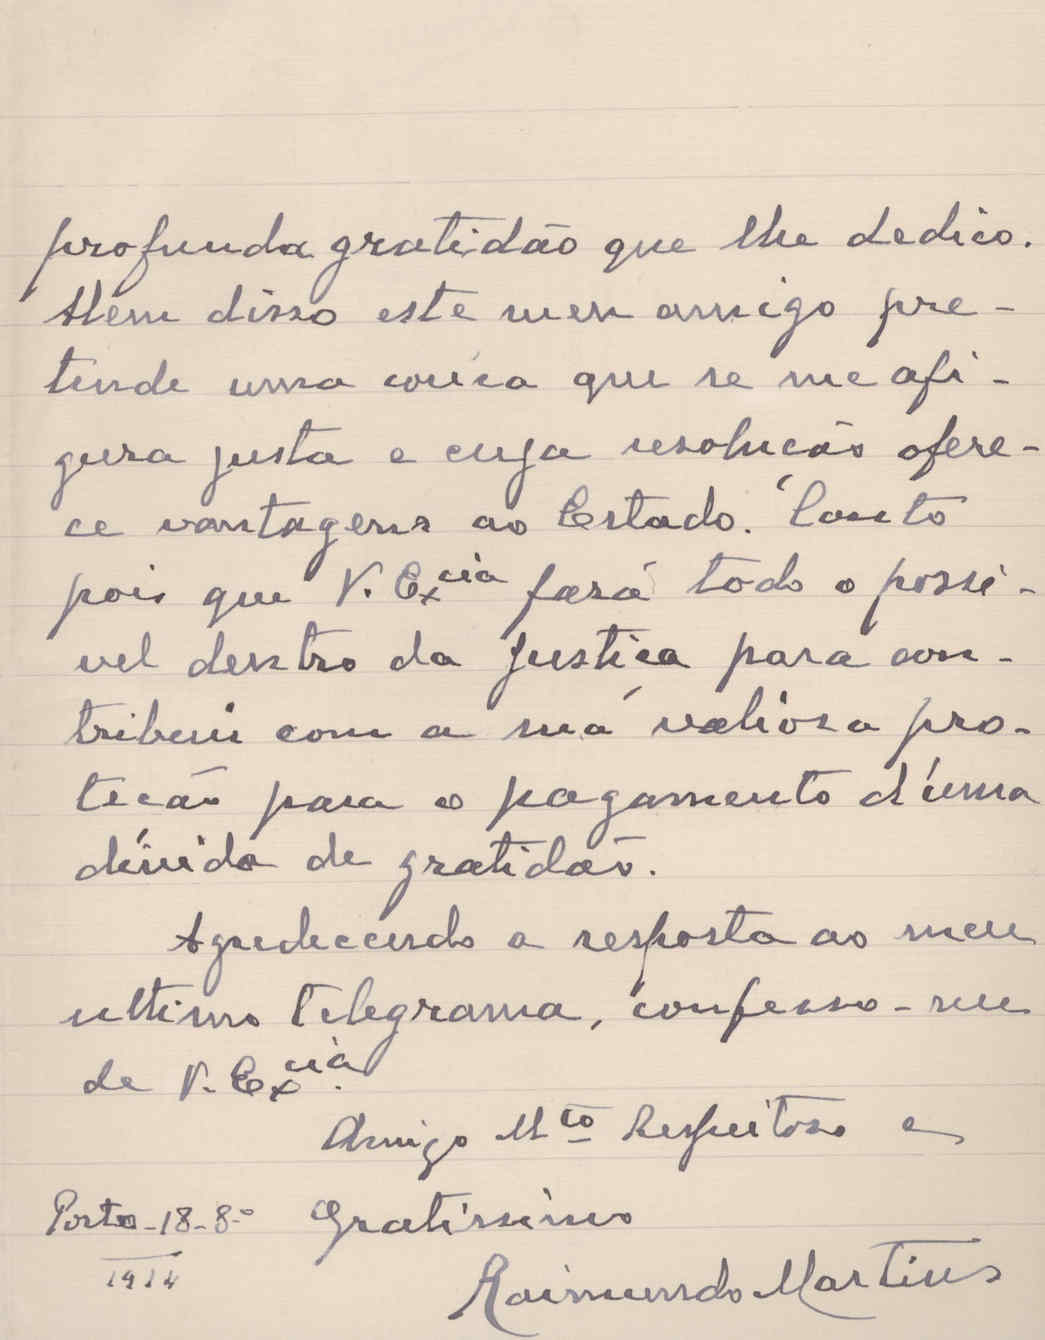 profunda gratidão que lhe dedico.
Além disso este meu amigo pre-
tende uma couca que se me afi-
gura justa e cuja resolucão ofere-
ce vantagens ao Estado. Conto
pois que V. Excia fará todo o possi-
vel dentro da justiça para con-
tribuir com a sua valiosa pro-
tecão para o pagamento d'uma
divida de gratidão.
Agradecendo a resposta ao meu
ultimo telegrama, confesso-me
de V. Excia.
Amigo Mto Respeitoso e
Porto-18-8-º Gratissimo
1914
Raimundo Martins